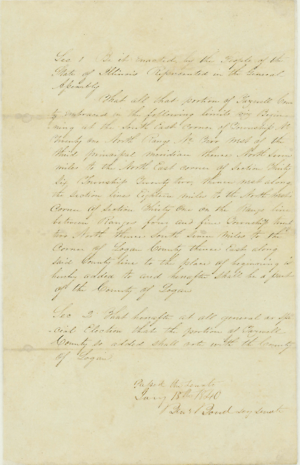 Sec 1. Be it enacted by the People of the
State of Illinois Represented in the General
Assembly
That all that portion of Tazwell County
embraced in the following limits viz Begin
ning at the South East Corner of Township No
Twenty one North Range No Two west of the
third principal meridian thence North
miles to the North East corner of Section Thirty
Six Township Twenty two, thence west along
the Section lines Eighteen miles to the North West
Corner of Section on the Range line
between Ranges four and five Township
two North thence South miles to the
Corner of Logan County thence East along
said County line to the place of beginning is
hereby added to and hereafter shall be a part
of the County of Logan
Sec 2 That hereafter at all general or spe
cial Election that the portion of Tazwell
County so added shall vote with the County
of Logan
Passed the Senate
Jany 18th 1840
Bond secy senate